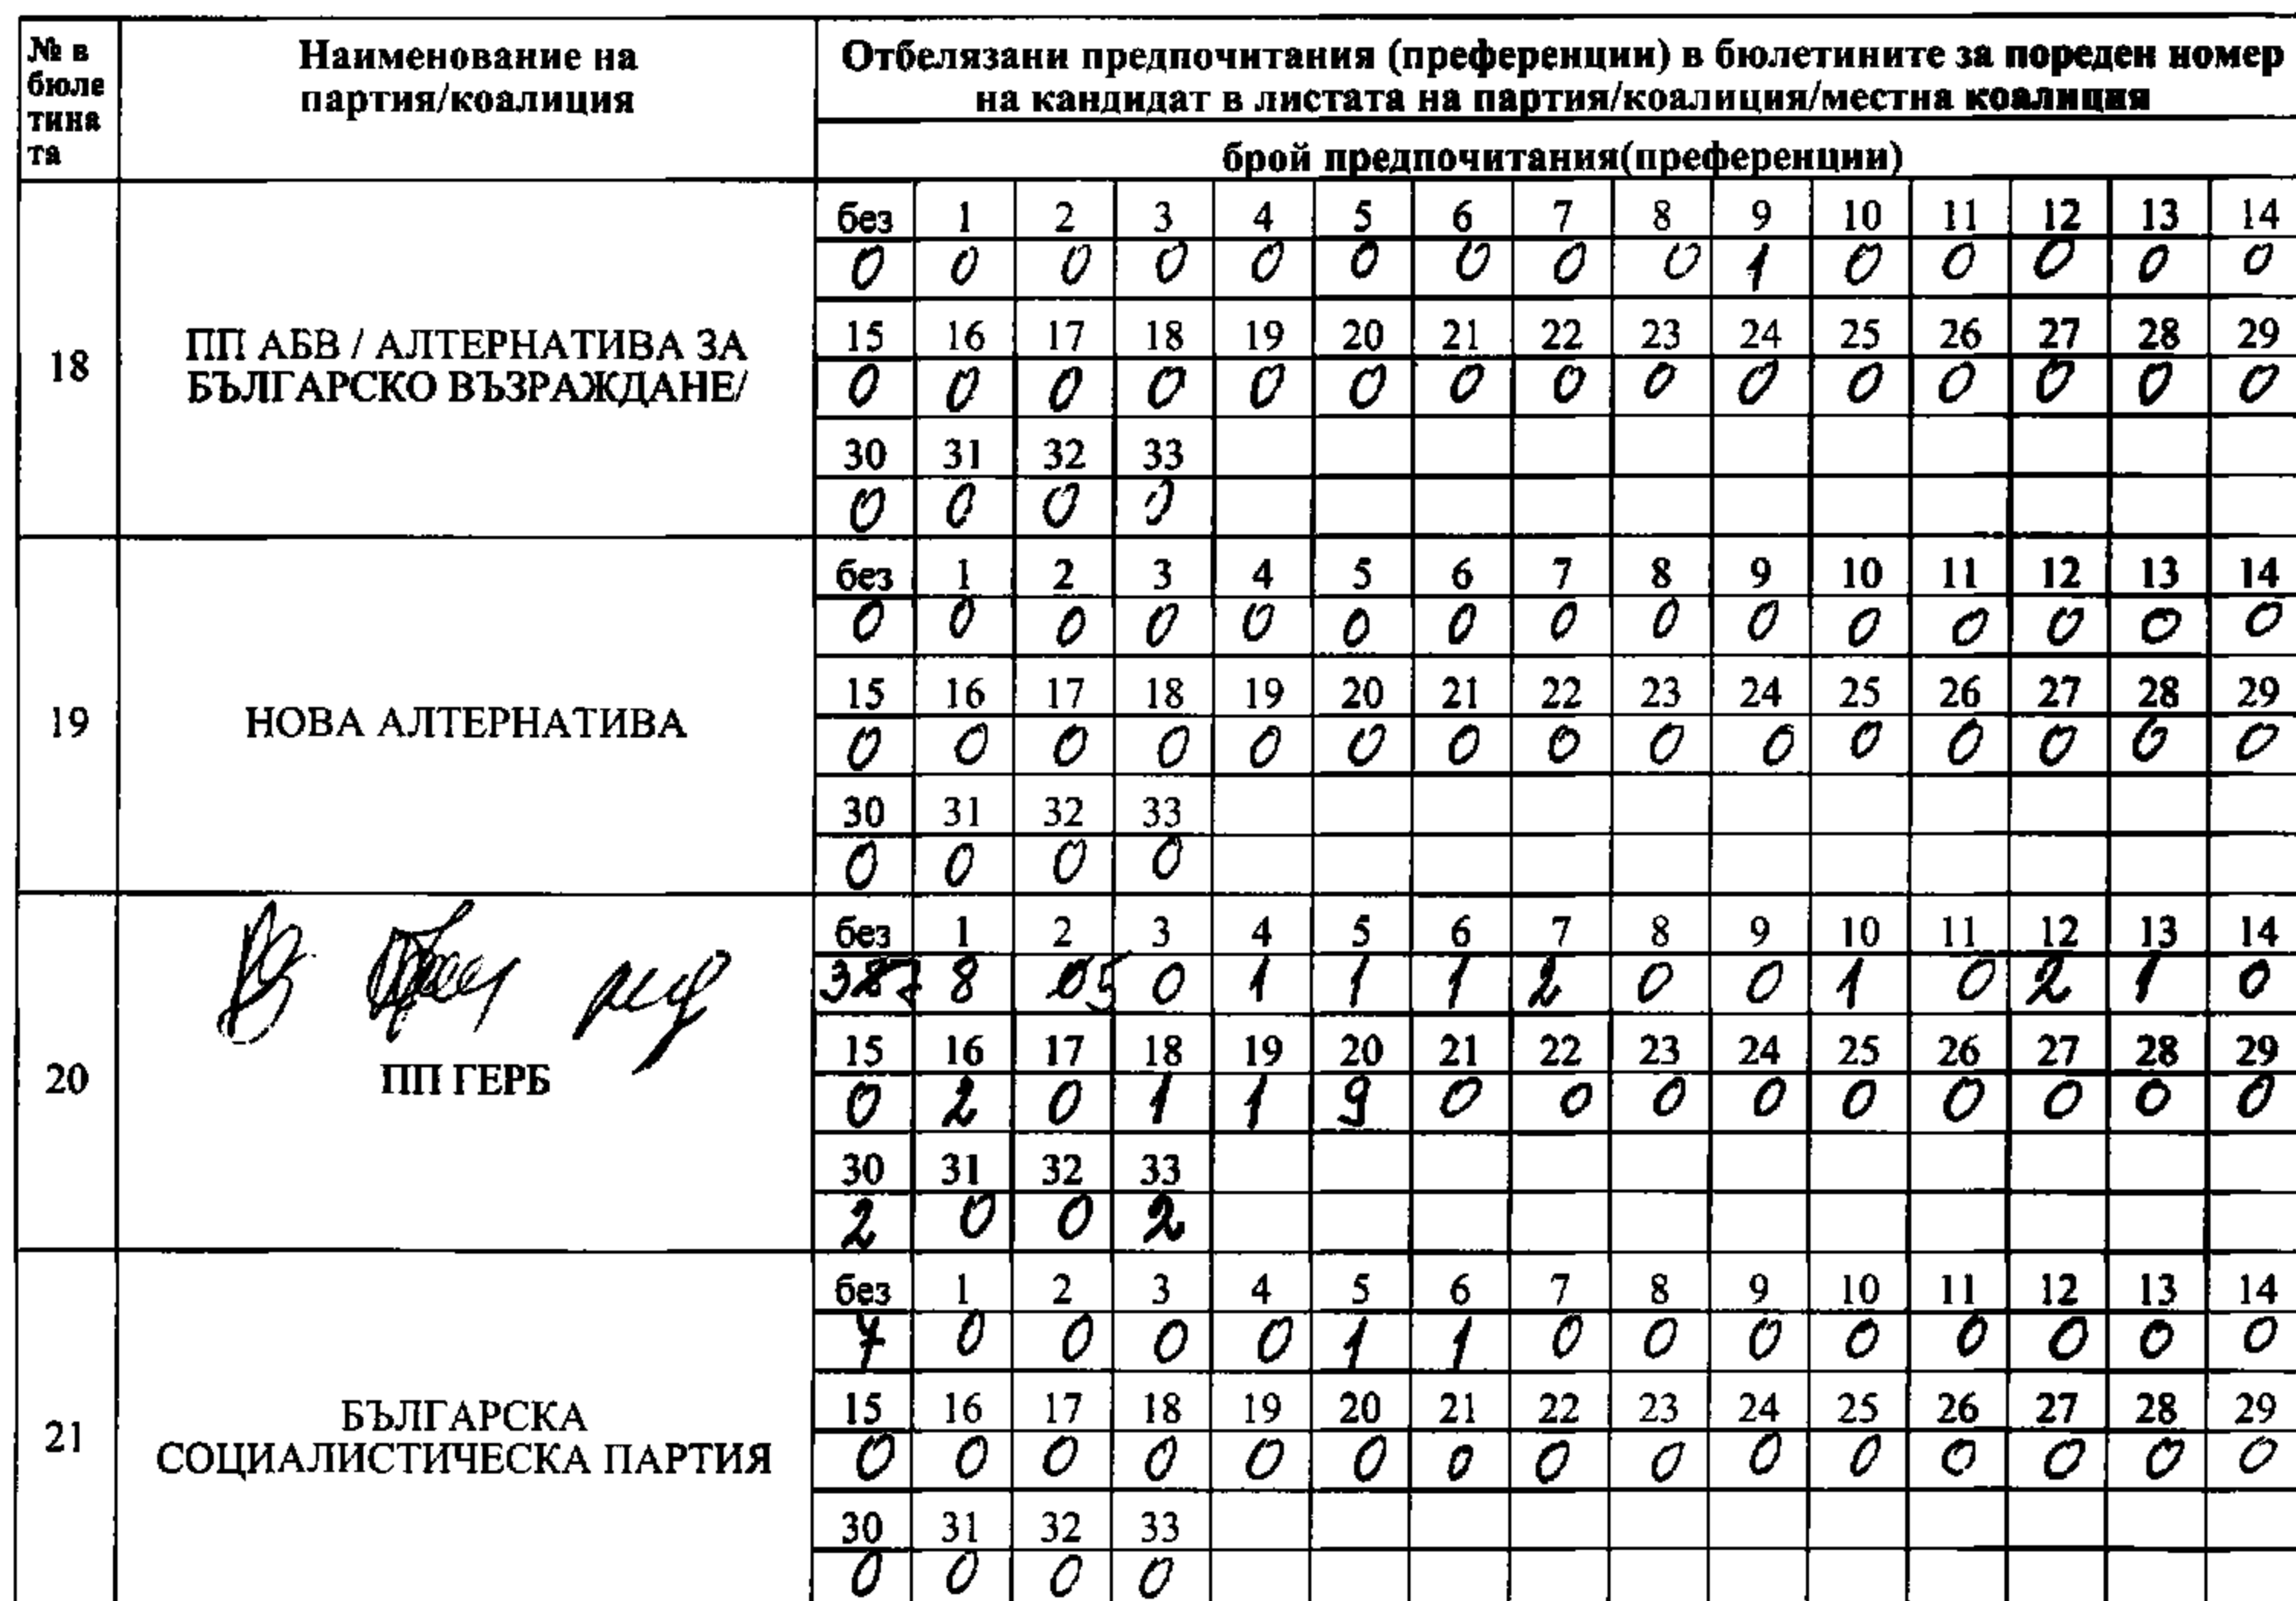 № в бюле тина та
Наименование на партия/коалиция
Отбелязани предпочитания (преференции) в бюлетините за пореден номер
на кандидат в листата на партия/коалиция/местна коалиция
брой предпочитания(преференции)
18
ПП АБВ / АЛТЕРНАТИВА ЗА
БЪЛГАРСКО ВЪЗРАЖДАНЕ/
без 1 2 3 4 5 6 7 8 9 10 11 12 13 14
0 0 0 0 0 0 0 0 0 1 0 0 0 0 0
15 16 17 18 19 20 21 22 23 24 25 26 27 28 29
0 0 0 0 0 0 0 0 0 0 0 0 0 0 0
30 31 32 33
0 0 0 0
19
НОВА АЛТЕРНАТИВА
без 1 2 3 4 5 6 7 8 9 10 11 12 13 14
0 0 0 0 0 0 0 0 0 0 0 0 0 0 0
15 16 17 18 19 20 21 22 23 24 25 26 27 28 29
0 0 0 0 0 0 0 0 0 0 0 0 0 0 0
30 31 32 33
0 0 0 0
20
ПП ГЕРБ
без 1 2 3 4 5 6 7 8 9 10 11 12 13 14
8 5 0 1 1 1 2 0 0 1 0 2 1 0
15 16 17 18 19 20 21 22 23 24 25 26 27 28 29
0 2 0 1 1 9 0 0 0 0 0 0 0 0 0
30 31 32 33
2 0 0 2
21
БЪЛГАРСКА
СОЦИАЛИСТИЧЕСКА ПАРТИЯ
без 1 2 3 4 5 6 7 8 9 10 11 12 13 14
7 0 0 0 0 1 1 0 0 0 0 0 0 0 0
15 16 17 18 19 20 21 22 23 24 25 26 27 28 29
0 0 0 0 0 0 0 0 0 0 0 0 0 0 0
30 31 32 33
0 0 0 0